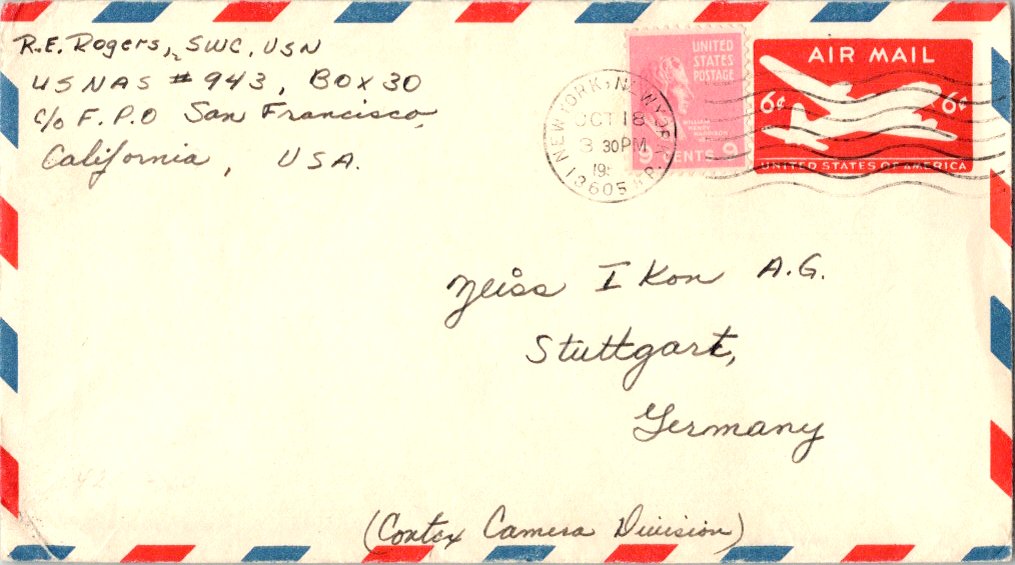 R.E. Rogers, SWC, USN
US NAS # 943, BOX 30
c/o F.P.O San Francisco,
California, USA.
NEW YORK, NEW YORK
OCT 18
3 30 PM
19
13605 R.P.
UNITED
STATES
POSTAGE
WILLIAM
HENRY
HARRISON
9 CENTS 9
AIR MAIL
6¢ 6¢
UNITED STATES OF AMERICA
Zeiss Ikon A.G.
Stuttgart,
Germany
(Contax Camera Division)